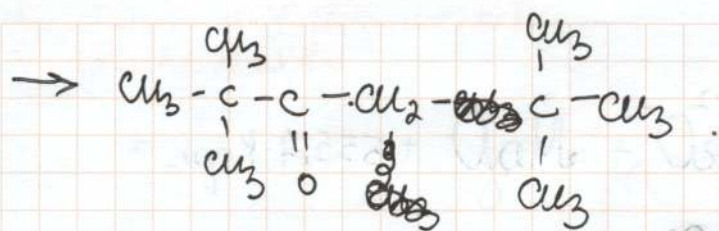 CH3 CH3
→ CH3 - C - C - CH2 - C - CH3 .
CH3 O CH3